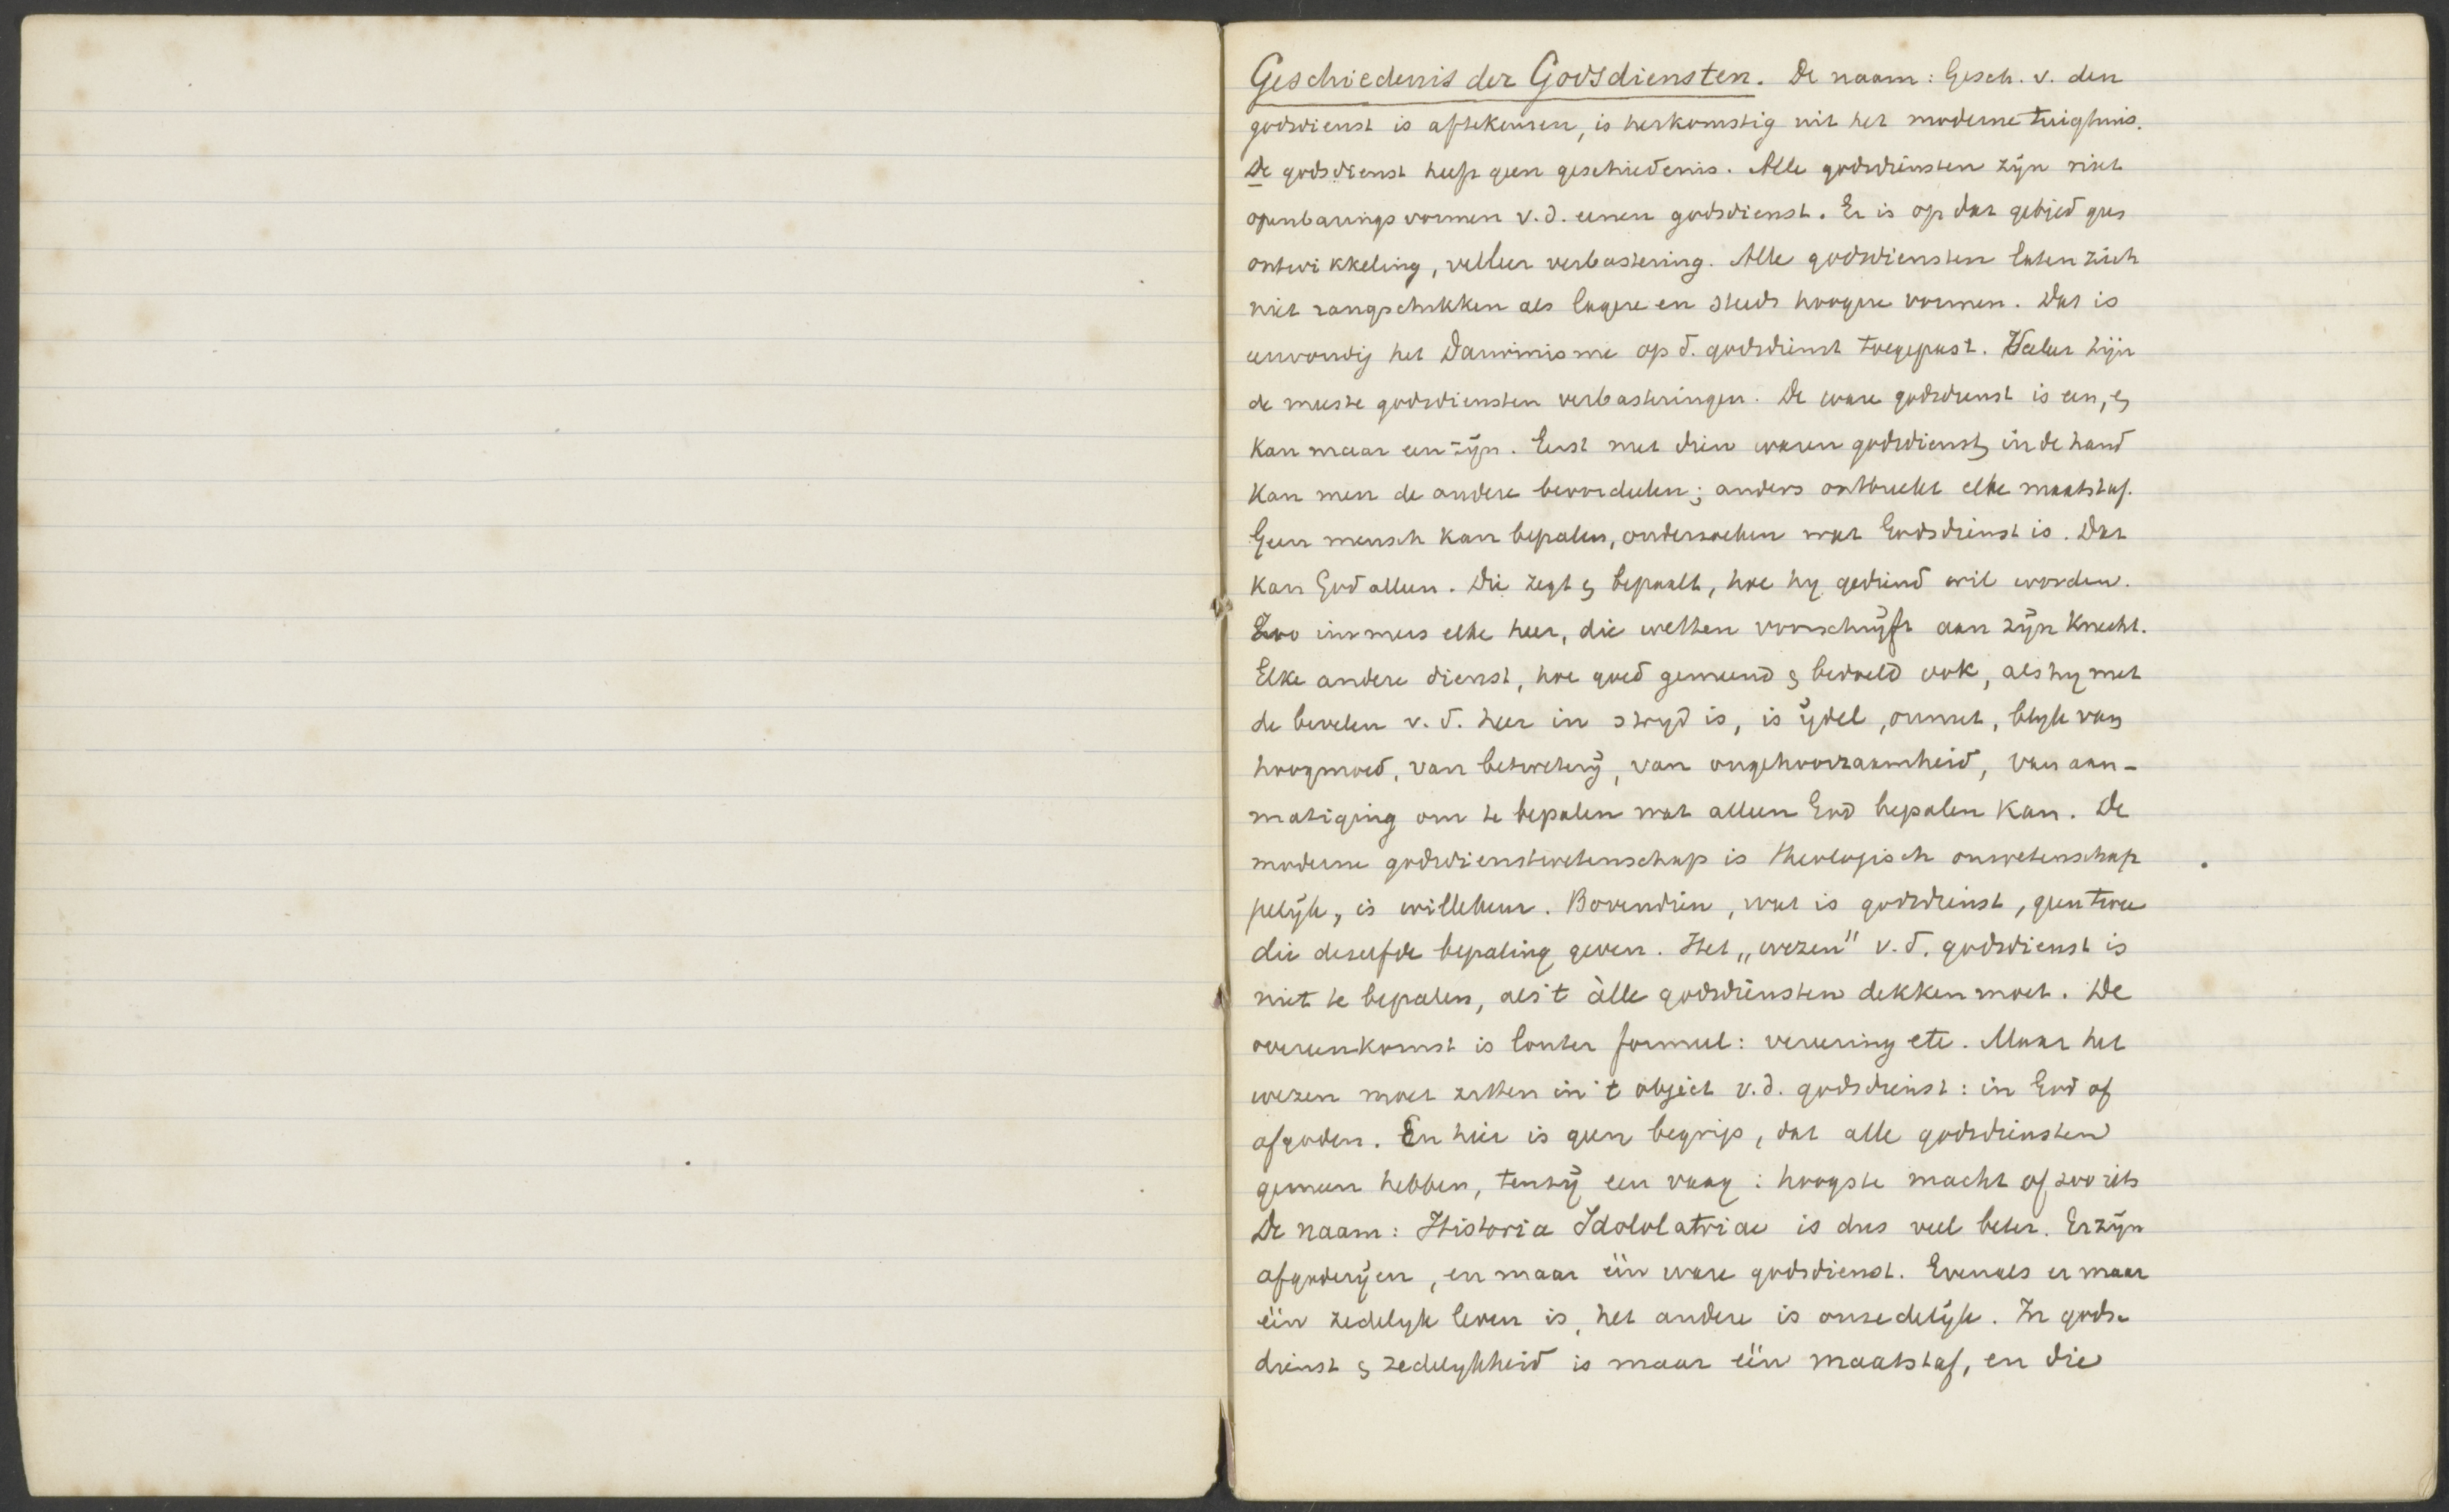 Geschiedenis der Godsdiensten. De naam: Gesch. v. den
godsdienst is aftekeuren, is herkomstig uit het moderne tuighuis.
De godsdienst heeft geen geschiedenis. Alle godsdiensten zijn niet
openbaringsvormen v.d. eenen godsdienst. Er is op dat gebied geen
ontwikkeling, veeleer verbastering. Alle godsdiensten laten zich
niet rangschikken als lagere en steeds hoogere vormen. Dat is
eenvoudig het Darwinisme op d. godsdienst toegepast. Veeleer zijn
de meeste godsdiensten verbasteringen. De ware godsdienst is een, en
kan maar een zijn. Eerst met dien waren godsdienst in de hand
kan men de andere beoordeelen; anders ontbreekt elke maatstaf.
Geen mensch kan bepalen, onderzoeken wat Godsdienst is. Dat
kan God alleen. Die zegt en bepaalt, hoe hy gediend wil worden.
Zoo immers elke heer, die wetten voorschrijft aan zijn knecht.
Elke andere dienst, hoe goed gemeend en bedoeld ook, als hy met
de bevelen v. d. heer in stryd is, is ijdel, onnut, blyk van
hoogmoed, van betweterij, van ongehoorzaamheid, van aan-
matiging om te bepalen wat alleen God bepalen kan. De
moderne godsdienstwetenschap is theologisch onwetenschap
pelijk, is willekeur. Bovendien, wat is godsdienst, geen twee
die dezelfde bepaling geven. Het „wezen" v. d. godsdienst is
niet te bepalen, als 't àlle godsdiensten dekken moet. De
overeenkomst is louter formeel: vereering etc. Maar het
wezen moet zitten in 't object v.d. godsdienst: in God of
afgoden. En hier is geen begrip, dat alle godsdiensten
gemeen hebben, tenzij een vaag: hoogste macht of zoo iets
De naam: Historia Idololatriae is dus veel beter. Er zijn
afgoderijen, en maar één ware godsdienst. Evenals er maar
één zedelyk leven is, het andere is onzedelijk. In gods-
dienst en zedelykheid is maar één maatstaf, en die